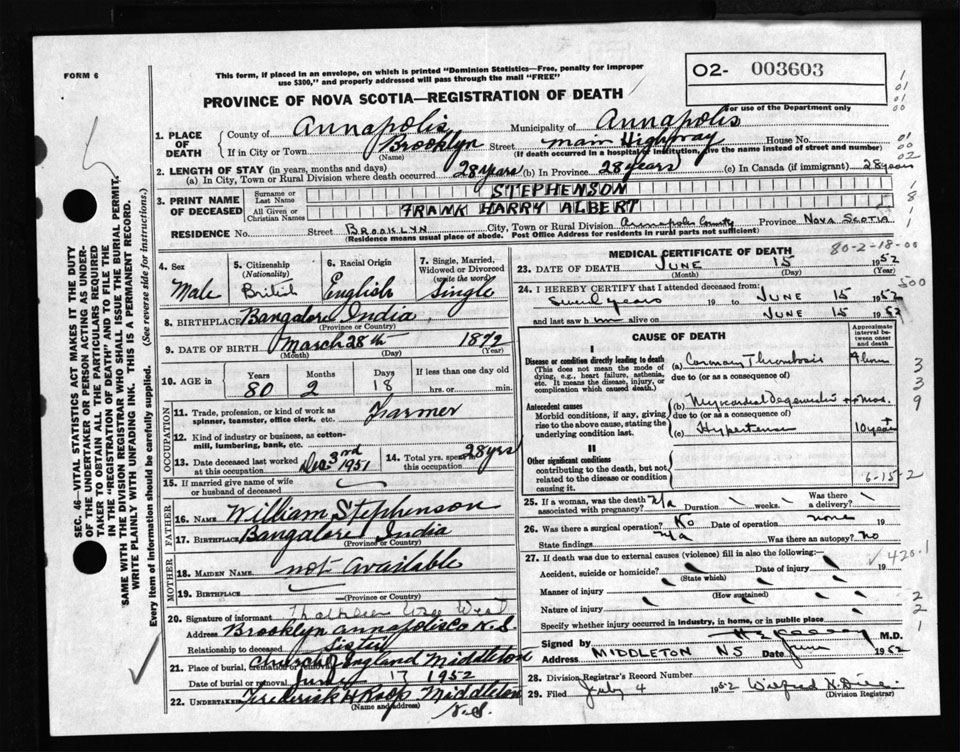 FORM 6
This form, if placed in an envelope, on which is printed "Dominion Statistics—Free, penalty for improper
use $300," and properly addressed will pass through the mail "FREE"
02- 003603
For use of the Department only
PROVINCE OF NOVA SCOTIA—REGISTRATION OF DEATH
1. PLACE OF DEATH
County of Annapolis Municipality of Annapolis
If in City or Town Brooklyn Street Main Highway House No.
(Name) (If death occurred in a hospital or institution, give the name instead of street and number)
2. LENGTH OF STAY (in years, months and days)
(a) In City, Town or Rural Division where death occurred 28 years (b) In Province 28 years (c) In Canada (if immigrant) 28 years
3. PRINT NAME OF DECEASED
Surname or Last Name STEPHENSON
All Given or Christian Names FRANK HARRY ALBERT
RESIDENCE No. Street BROOKLYN City, Town or Rural Division Annapolis County Province NOVA SCOTIA
(Residence means usual place of abode. Post Office Address for residents in rural parts not sufficient)
SEC. 46—VITAL STATISTICS ACT MAKES IT THE DUTY
OF THE UNDERTAKER OR PERSON ACTING AS UNDER-
TAKER TO OBTAIN ALL THE PARTICULARS REQUIRED
IN THE "REGISTRATION OF DEATH" AND TO FILE THE
SAME WITH THE DIVISION REGISTRAR WHO SHALL ISSUE THE BURIAL PERMIT.
WRITE PLAINLY WITH UNFADING INK. THIS IS A PERMANENT RECORD.
Every item of information should be carefully supplied. (See reverse side for instructions.)
4. Sex Male
5. Citizenship (Nationality) British
6. Racial Origin English
7. Single, Married, Widowed or Divorced (write the word) Single
8. BIRTHPLACE Bangalore India
(Province or Country)
9. DATE OF BIRTH March 28th 1872
(Month) (Day) (Year)
10. AGE in Years 80 Months 2 Days 18 If less than one day
hrs. or min.
OCCUPATION
11. Trade, profession, or kind of work as
spinner, teamster, office clerk, etc. Farmer
12. Kind of industry or business, as cotton-
mill, lumbering, bank, etc.
13. Date deceased last worked at this occupation Dec 3rd 1951
14. Total yrs. spent in this occupation 28 yrs
15. If married give name of wife
or husband of deceased
FATHER
16. NAME William Stephenson
17. BIRTHPLACE Bangalore India
(Province or Country)
MOTHER
18. MAIDEN NAME not available
19. BIRTHPLACE
(Province or Country)
20. Signature of informant
Address Brooklyn Annapolis Co N.S.
Relationship to deceased Sister
21. Place of burial, cremation or removal Church of England Middleton
Date of burial or removal 17 1952
22. UNDERTAKER Frederick H Roop Middleton
(Name and address) N.S.
MEDICAL CERTIFICATE OF DEATH 80-2-18-00
23. DATE OF DEATH JUNE 15 1952
(Month) (Day) (Year)
24. I HEREBY CERTIFY that I attended deceased from:
Several years 19 to JUNE 15 1952
and last saw him alive on JUNE 15 1952
CAUSE OF DEATH
Approximate interval between onset and death
I
Disease or condition directly leading to death
(This does not mean the mode of
dying, e.g., heart failure, asthenia,
etc. It means the disease, injury, or
complication which caused death.)
(a) Coronary Thrombosis
due to (or as a consequence of)
Antecedent causes
Morbid conditions, if any, giving
rise to the above cause, stating the
underlying condition last.
(b) Myocardial Degeneration mos.
due to (or as a consequence of)
(c) Hypertension 10 years +
II
Other significant conditions
contributing to the death, but not
related to the disease or condition
causing it.
6-15-2
25. If a woman, was the death associated with pregnancy? n/a Duration weeks. Was there a delivery?
26. Was there a surgical operation? No Date of operation none 19
State findings n/a Was there an autopsy? No
27. If death was due to external causes (violence) fill in also the following:—
420.1
Accident, suicide or homicide? Date of injury 19
(State which)
Manner of injury
(How sustained)
Nature of injury
Specify whether injury occurred in industry, in home, or in public place
Signed by M.D.
Address MIDDLETON NS Date June 1952
28. Division Registrar's Record Number
29. Filed July 4 1952
(Division Registrar)